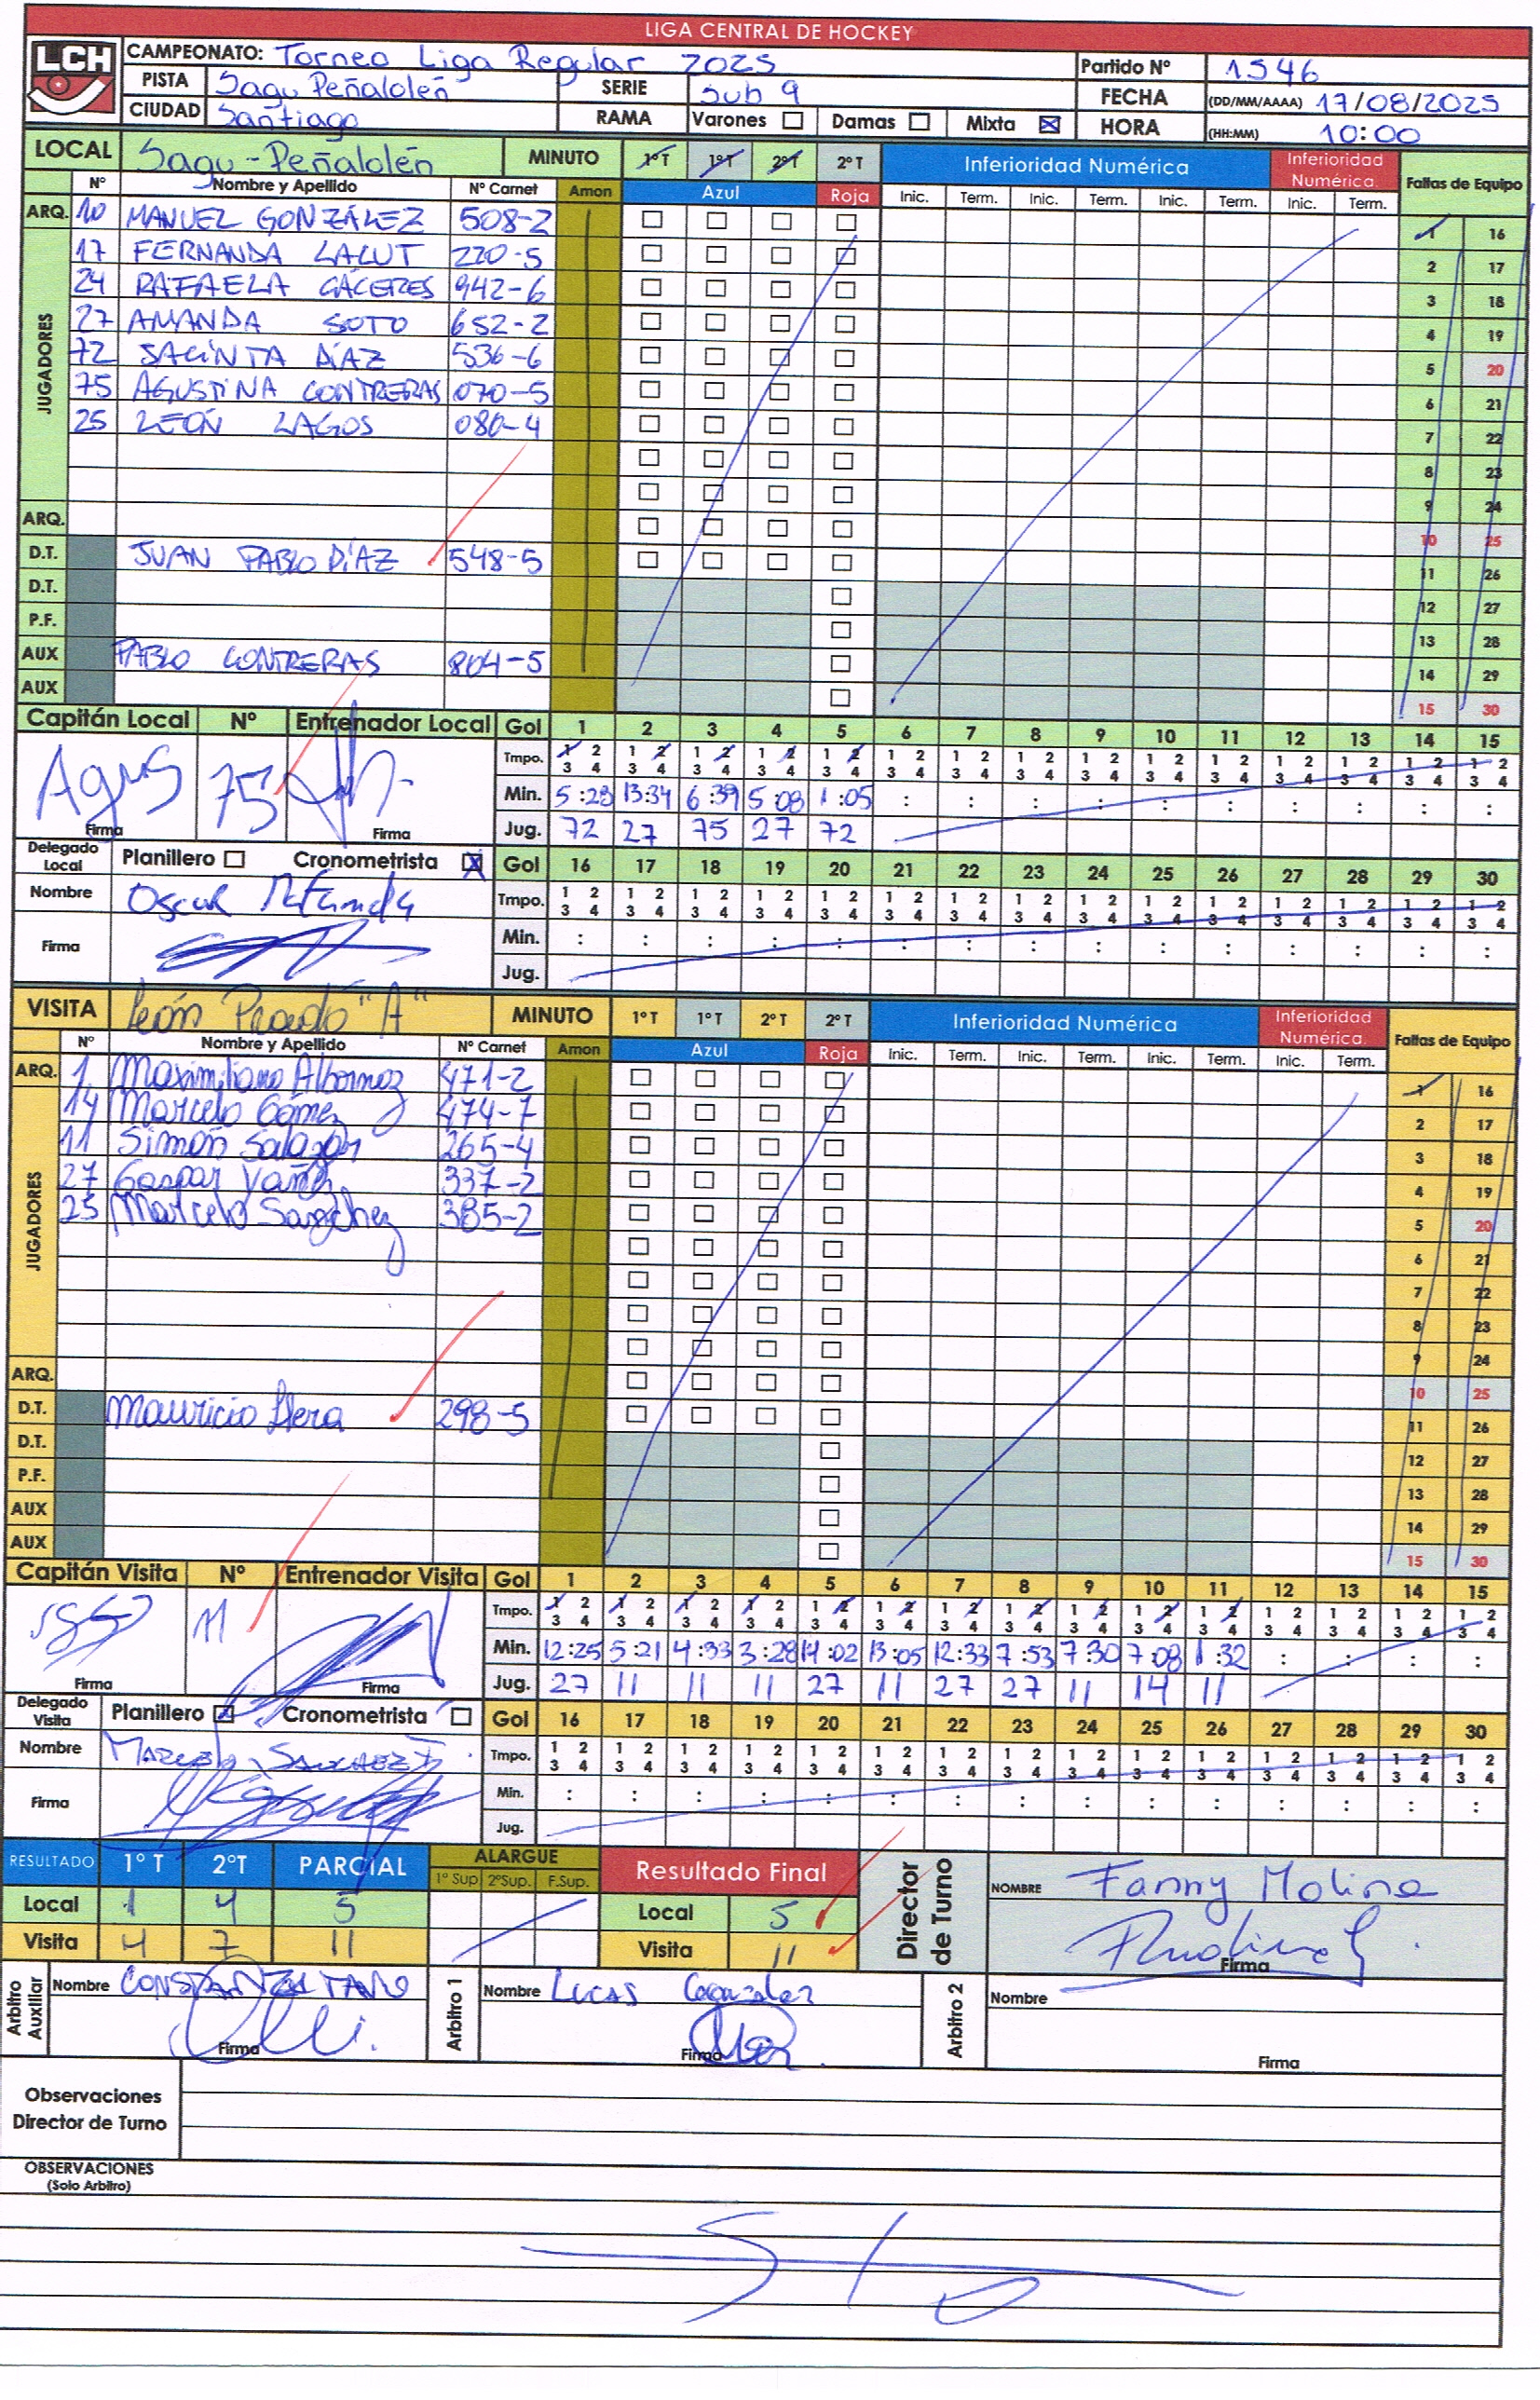 LIGA CENTRAL DE HOCKEY
LCH
CAMPEONATO: Torneo Liga Regular 2025 Partido Nº 1546
PISTA Sagu Peñalolén SERIE Sub 9 FECHA (DD/MM/AAAA) 17/08/2025
CIUDAD Santiago RAMA Varones ☐ Damas ☐ Mixta ☒ HORA (HH:MM) 10:00
LOCAL Sagu-Peñalolén MINUTO 1º T 1º T 2º T 2º T Inferioridad Numérica Inferioridad Numérica. Faltas de Equipo
Nº Nombre y Apellido Nº Carnet Amon Azul Roja Inic. Term. Inic. Term. Inic. Term. Inic. Term.
ARQ. 10 MANUEL GONZÁLEZ 508-2 1 16
JUGADORES
17 FERNANDA LALUT 220-5 2 17
24 RAFAELA CÁCERES 942-6 3 18
27 AMANDA SOTO 652-2 4 19
72 JACINTA DÍAZ 536-6 5 20
75 AGUSTINA CONTRERAS 070-5 6 21
25 LEÓN LAGOS 080-4 7 22
8 23
9 24
ARQ. 10 25
D.T. JUAN PABLO DÍAZ 548-5 11 26
D.T. 12 27
P.F. 13 28
AUX PABLO CONTRERAS 804-5 14 29
AUX 15 30
Capitán Local Nº Entrenador Local Gol 1 2 3 4 5 6 7 8 9 10 11 12 13 14 15
Tmpo. 1 2 1 2 1 2 1 2 1 2 1 2 1 2 1 2 1 2 1 2 1 2 1 2 1 2 1 2 1 2
3 4 3 4 3 4 3 4 3 4 3 4 3 4 3 4 3 4 3 4 3 4 3 4 3 4 3 4 3 4
Agus 75 Min. 5:28 13:34 6:39 5:08 1:05 : : : : : : : : : :
Firma Firma Jug. 72 27 75 27 72
Delegado Local Planillero ☐ Cronometrista ☒ Gol 16 17 18 19 20 21 22 23 24 25 26 27 28 29 30
Nombre Oscar Tmpo. 1 2 1 2 1 2 1 2 1 2 1 2 1 2 1 2 1 2 1 2 1 2 1 2 1 2 1 2 1 2
3 4 3 4 3 4 3 4 3 4 3 4 3 4 3 4 3 4 3 4 3 4 3 4 3 4 3 4 3 4
Firma Min. : : : : : : : : : : : : : : :
Jug.
VISITA León Prado "A" MINUTO 1º T 1º T 2º T 2º T Inferioridad Numérica Inferioridad Numérica. Faltas de Equipo
Nº Nombre y Apellido Nº Carnet Amon Azul Roja Inic. Term. Inic. Term. Inic. Term. Inic. Term.
ARQ. 1 Maximiliano Albornoz 471-2 1 16
JUGADORES
14 Marcelo Gómez 474-7 2 17
11 Simón Salazar 265-4 3 18
27 Gaspar Yañez 337-2 4 19
25 Marcelo Sanchez 385-2 5 20
6 21
7 22
8 23
9 24
ARQ. 10 25
D.T. Mauricio Llera 298-5 11 26
D.T. 12 27
P.F. 13 28
AUX 14 29
AUX 15 30
Capitán Visita Nº Entrenador Visita Gol 1 2 3 4 5 6 7 8 9 10 11 12 13 14 15
Tmpo. 1 2 1 2 1 2 1 2 1 2 1 2 1 2 1 2 1 2 1 2 1 2 1 2 1 2 1 2 1 2
3 4 3 4 3 4 3 4 3 4 3 4 3 4 3 4 3 4 3 4 3 4 3 4 3 4 3 4 3 4
11 Min. 12:25 5:21 4:33 3:28 14:02 13:05 12:33 7:53 7:30 7:08 1:32 : : : :
Firma Firma Jug. 27 11 11 11 27 11 27 27 11 14 11
Delegado Visita Planillero ☑ Cronometrista ☐ Gol 16 17 18 19 20 21 22 23 24 25 26 27 28 29 30
Nombre Marcelo Sanchez Tmpo. 1 2 1 2 1 2 1 2 1 2 1 2 1 2 1 2 1 2 1 2 1 2 1 2 1 2 1 2 1 2
3 4 3 4 3 4 3 4 3 4 3 4 3 4 3 4 3 4 3 4 3 4 3 4 3 4 3 4 3 4
Firma Min. : : : : : : : : : : : : : : :
Jug.
RESULTADO 1º T 2ºT PARCIAL ALARGUE Resultado Final Director de Turno NOMBRE Fanny Molina
1º Sup 2ºSup. F.Sup.
Local 1 4 5 Local 5
Visita 4 7 11 Visita 11 Firma
Arbitro Auxiliar Nombre CONSTANZA Arbitro 1 Nombre Lucas Gonzalez Arbitro 2 Nombre
Firma Firma Firma
Observaciones
Director de Turno
OBSERVACIONES
(Solo Arbitro)
S/O